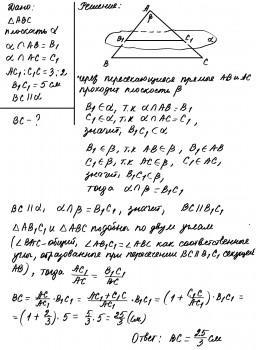 Дано:
△ABC
плоскость α
α∩AB = B₁
α∩AC = C₁
AC₁:C₁C = 3:2
B₁C₁ = 5 см
BC∥α
BC - ?
Решение:
A
β
B₁
C₁
α
B
C
через пересекающиеся прямые AB и AC
проходит плоскость β
B₁∈α, т.к α∩AB = B₁
C₁∈α, т.к α∩AC = C₁,
значит, B₁C₁⊂α
B₁∈β, т.к AB∈β, B₁∈AB
C₁∈β, т.к AC∈β, C₁∈AC,
значит, B₁C₁⊂β,
тогда α∩β = B₁C₁
BC∥α, α∩β = B₁C₁, значит, BC∥B₁C₁
△AB₁C₁ и △ABC подобны по двум углам
(∠BAC - общий, ∠AB₁C₁ = ∠ABC как соответственные
углы, образованные при пересечении BC∥B₁C₁ секущей
AB), тогда AC₁/AC = B₁C₁/BC
BC = AC/AC₁ · B₁C₁ = (AC₁+C₁C)/AC₁ · B₁C₁ = (1 + C₁C/AC₁) · B₁C₁ =
= (1 + 2/3) · 5 = 5/3 · 5 = 25/3 (см)
Ответ: BC = 25/3 см